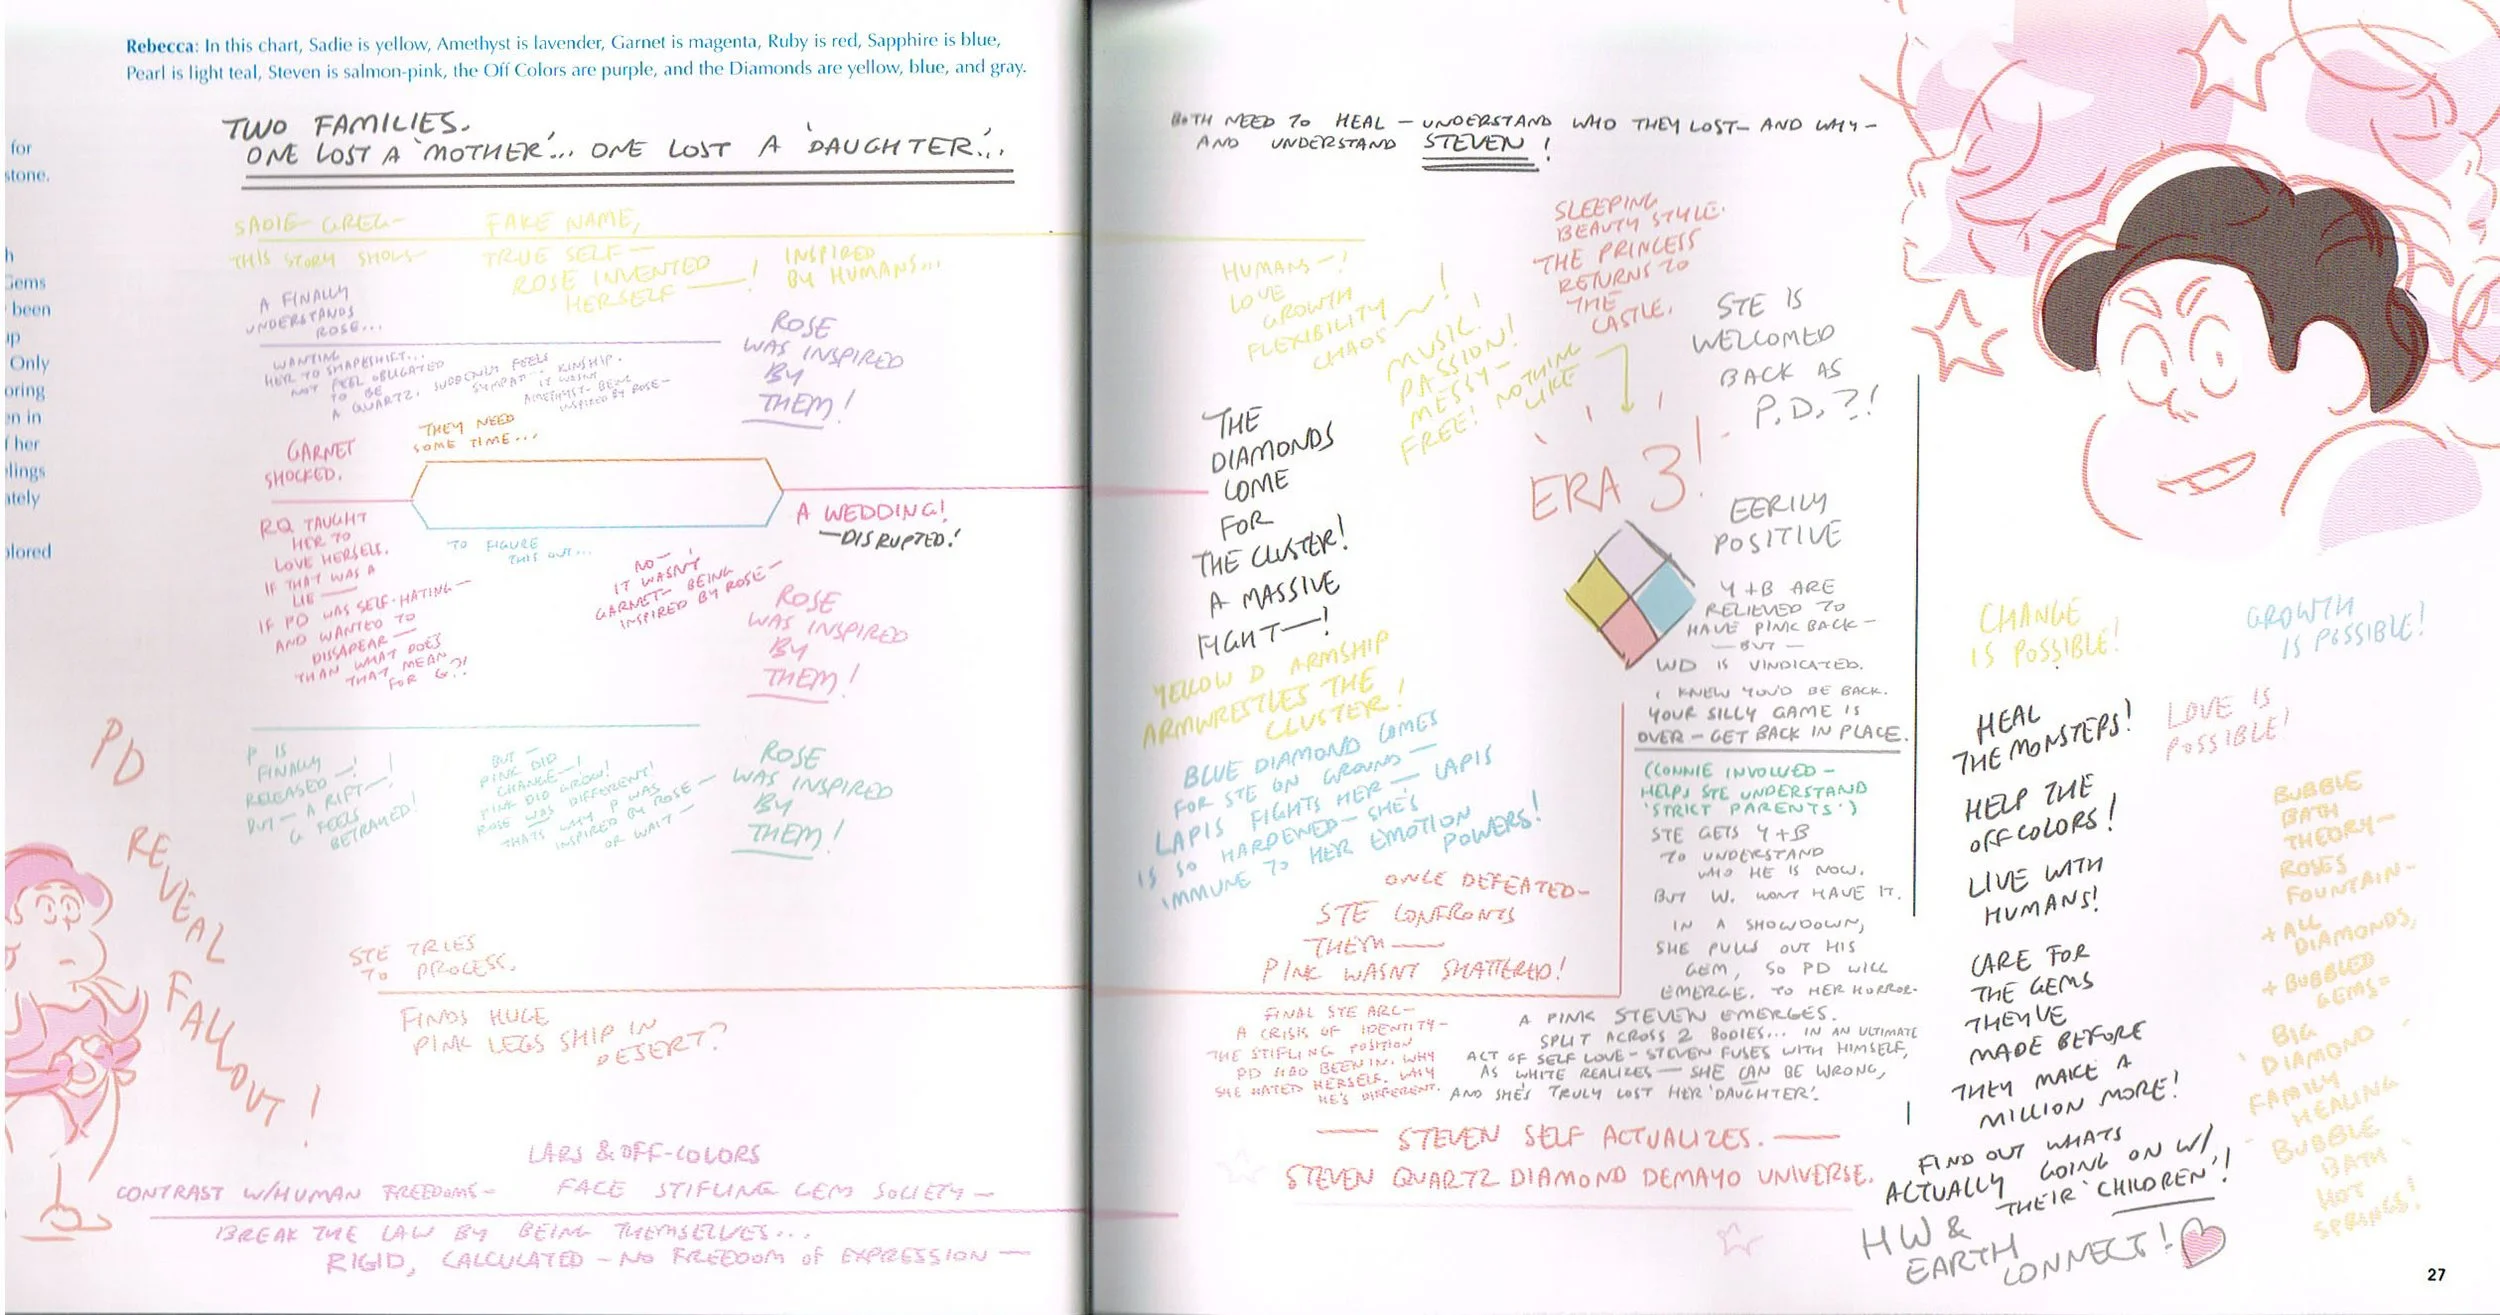 Rebecca: In this chart, Sadie is yellow, Amethyst is lavender, Garnet is magenta, Ruby is red, Sapphire is blue,
Pearl is light teal, Steven is salmon-pink, the Off Colors are purple, and the Diamonds are yellow, blue, and gray.
for
stone.
h
Gems
been
up
Only
oring
en in
f her
elings
ately
olored
TWO FAMILIES.
ONE LOST A 'MOTHER'... ONE LOST A 'DAUGHTER'...
SADIE - GREG -
THIS STORY SHOWS -
FAKE NAME,
TRUE SELF -
ROSE INVENTED
HERSELF - !
INSPIRED
BY HUMANS...
A FINALLY
UNDERSTANDS
ROSE...
WANTING
HER TO SHAPESHIFT...
NOT FEEL OBLIGATED
TO BE
A QUARTZ. SUDDENLY FEELS
SYMPAT... KINSHIP.
IT WASN'T
AMETHYST - BEING
INSPIRED BY ROSE -
ROSE
WAS INSPIRED
BY
THEM!
THEY NEED
SOME TIME...
GARNET
SHOCKED.
RQ TAUGHT
HER TO
LOVE HERSELF.
IF THAT WAS A
LIE -
IF PD WAS SELF-HATING -
AND WANTED TO
DISSAPEAR -
THAN WHAT DOES
THAT MEAN
FOR G?!
TO FIGURE
THIS OUT...
NO -
IT WASN'T
GARNET - BEING
INSPIRED BY ROSE -
A WEDDING!
- DISRUPTED!
ROSE
WAS INSPIRED
BY
THEM!
P IS
FINALLY
RELEASED - !
BUT - A RIFT - !
G FEELS
BETRAYED!
BUT -
PINK DID
CHANGE - !
PINK DID GROW!
ROSE WAS DIFFERENT!
THATS WHY P WAS
INSPIRED BY ROSE -
OR WAIT -
ROSE
WAS INSPIRED
BY
THEM!
PD
REVEAL
FALLOUT!
STE TRIES
TO PROCESS.
FINDS HUGE
PINK LEGS SHIP IN
DESERT?
LARS & OFF-COLORS
CONTRAST W/HUMAN FREEDOMS - FACE STIFLING GEM SOCIETY -
BREAK THE LAW BY BEING THEMSELVES...
RIGID, CALCULATED - NO FREEDOM OF EXPRESSION -
BOTH NEED TO HEAL - UNDERSTAND WHO THEY LOST - AND WHY -
AND UNDERSTAND STEVEN!
HUMANS - !
LOVE
GROWTH
FLEXIBILITY
CHAOS - !
MUSIC!
PASSION!
MESSY -
FREE! NOTHING
LIKE
SLEEPING
BEAUTY STYLE.
THE PRINCESS
RETURNS TO
THE
CASTLE.
ERA 3!
STE IS
WELCOMED
BACK AS
P.D.?!
EERILY
POSITIVE
Y+B ARE
RELIEVED TO
HAVE PINK BACK -
- BUT -
WD IS VINDICATED.
I KNEW YOU'D BE BACK.
YOUR SILLY GAME IS
OVER - GET BACK IN PLACE.
(CONNIE INVOLVED -
HELPS STE UNDERSTAND
'STRICT PARENTS')
STE GETS Y+B
TO UNDERSTAND
WHO HE IS NOW.
BUT W. WONT HAVE IT.
IN A SHOWDOWN,
SHE PULLS OUT HIS
GEM, SO PD WILL
EMERGE. TO HER HORROR -
A PINK STEVEN EMERGES.
SPLIT ACROSS 2 BODIES... IN AN ULTIMATE
ACT OF SELF LOVE - STEVEN FUSES WITH HIMSELF,
AS WHITE REALIZES - SHE CAN BE WRONG,
AND SHE'S TRULY LOST HER 'DAUGHTER'.
THE
DIAMONDS
COME
FOR
THE CLUSTER!
A MASSIVE
FIGHT - !
YELLOW D ARMSHIP
ARMWRESTLES THE
CLUSTER!
BLUE DIAMOND COMES
FOR STE ON GROUND -
LAPIS FIGHTS HER - LAPIS
IS SO HARDENED - SHE'S
IMMUNE TO HER EMOTION
POWERS!
ONCE DEFEATED -
STE CONFRONTS
THEM -
PINK WASNT SHATTERED!
FINAL STE ARC -
A CRISIS OF IDENTITY -
THE STIFLING POSITION
PD HAD BEEN IN. WHY
SHE HATED HERSELF. WHY
HE'S DIFFERENT.
- STEVEN SELF ACTUALIZES. -
STEVEN QUARTZ DIAMOND DEMAYO UNIVERSE.
CHANGE
IS POSSIBLE!
GROWTH
IS POSSIBLE!
LOVE IS
POSSIBLE!
HEAL
THE MONSTERS!
HELP THE
OFF COLORS!
LIVE WITH
HUMANS!
CARE FOR
THE GEMS
THEY'VE
MADE BEFORE
THEY MAKE A
MILLION MORE!
FIND OUT WHATS
ACTUALLY GOING ON W/
THEIR 'CHILDREN'!
HW &
EARTH
CONNECT!
BUBBLE
BATH
THEORY -
ROSES
FOUNTAIN -
+ ALL
DIAMONDS,
+ BUBBLED
GEMS =
BIG
DIAMOND
FAMILY
HEALING
BUBBLE
BATH
HOT
SPRINGS!
27